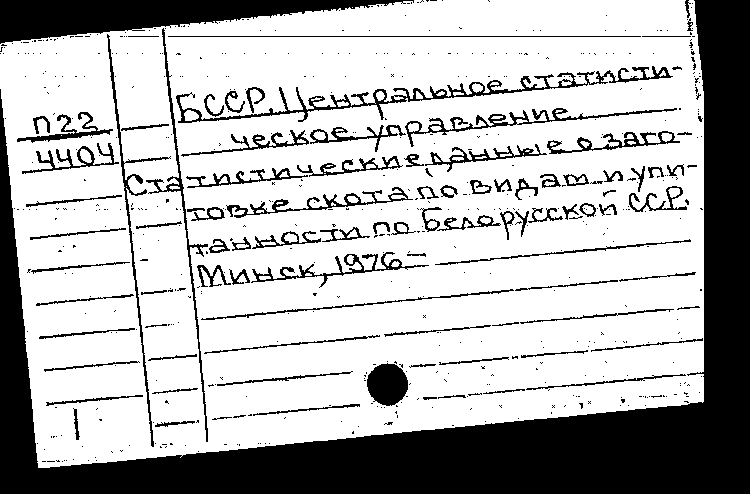 П22
4404
БССР. Центральное статисти-
ческое управление.
Статистические данные о заго-
товке скота по видам и упи-
танности по Белорусской ССР.
Минск, 1976-